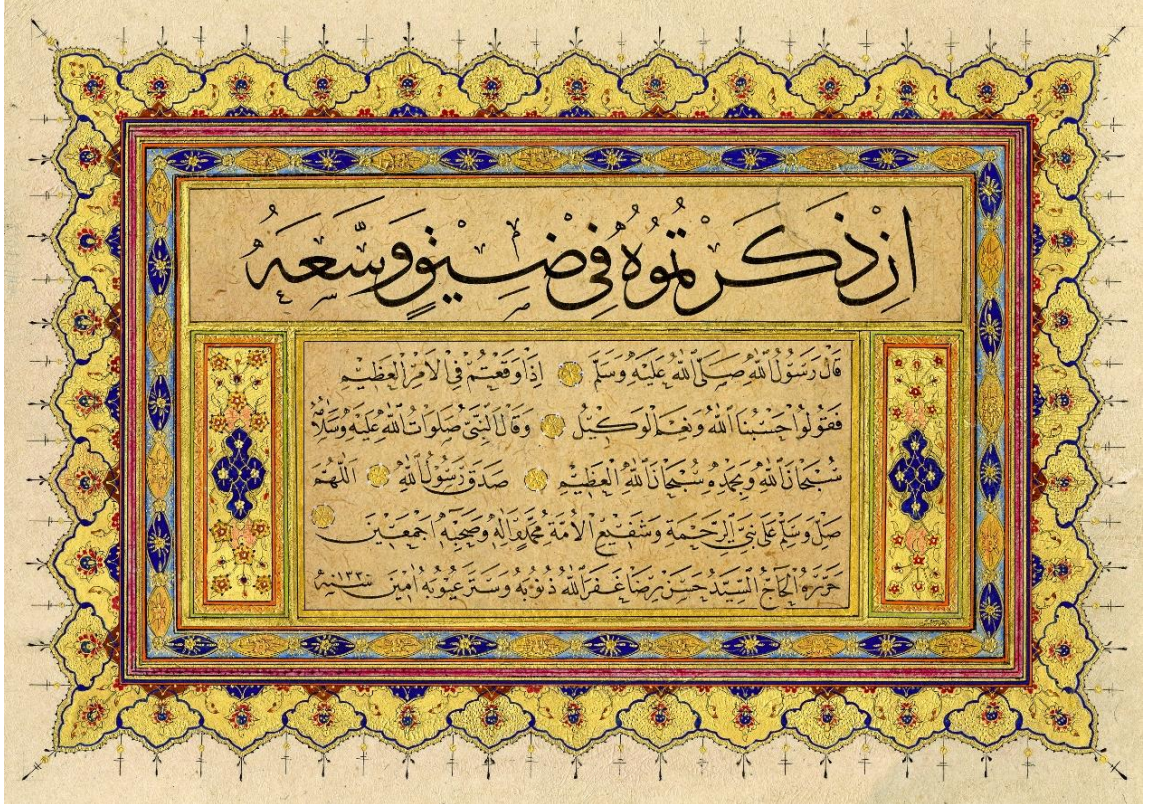 اِنْ ذَكَرْتُمُوهُ فِي ضِيقٍ وَسَّعَهُ
قَالَ رَسُولُ اللّٰهِ صَلَّى اللّٰهُ عَلَيْهِ وَسَلَّمَ اِذَا وَقَعْتُمْ فِي الْاَمْرِ الْعَظِيمِ
فَقُولُوا حَسْبُنَا اللّٰهُ وَنِعْمَ الْوَكِيلُ وَقَالَ النَّبِيُّ صَلَوَاتُ اللّٰهِ عَلَيْهِ وَسَلَامُهُ
سُبْحَانَ اللّٰهِ وَبِحَمْدِهِ سُبْحَانَ اللّٰهِ الْعَظِيمِ صَدَقَ رَسُولُ اللّٰهِ اَللّٰهُمَّ
صَلِّ وَسَلِّمْ عَلَى نَبِيِّ الرَّحْمَةِ وَشَفِيعِ الْاُمَّةِ مُحَمَّدٍ وَآلِهِ وَصَحْبِهِ اَجْمَعِينَ
حَرَّرَهُ الْحَاجُّ السَّيِّدُ حَسَنْ رِضَا غَفَرَ اللّٰهُ ذُنُوبَهُ وَسَتَرَ عُيُوبَهُ اٰمِينَ سَنَة ١٣٣٠